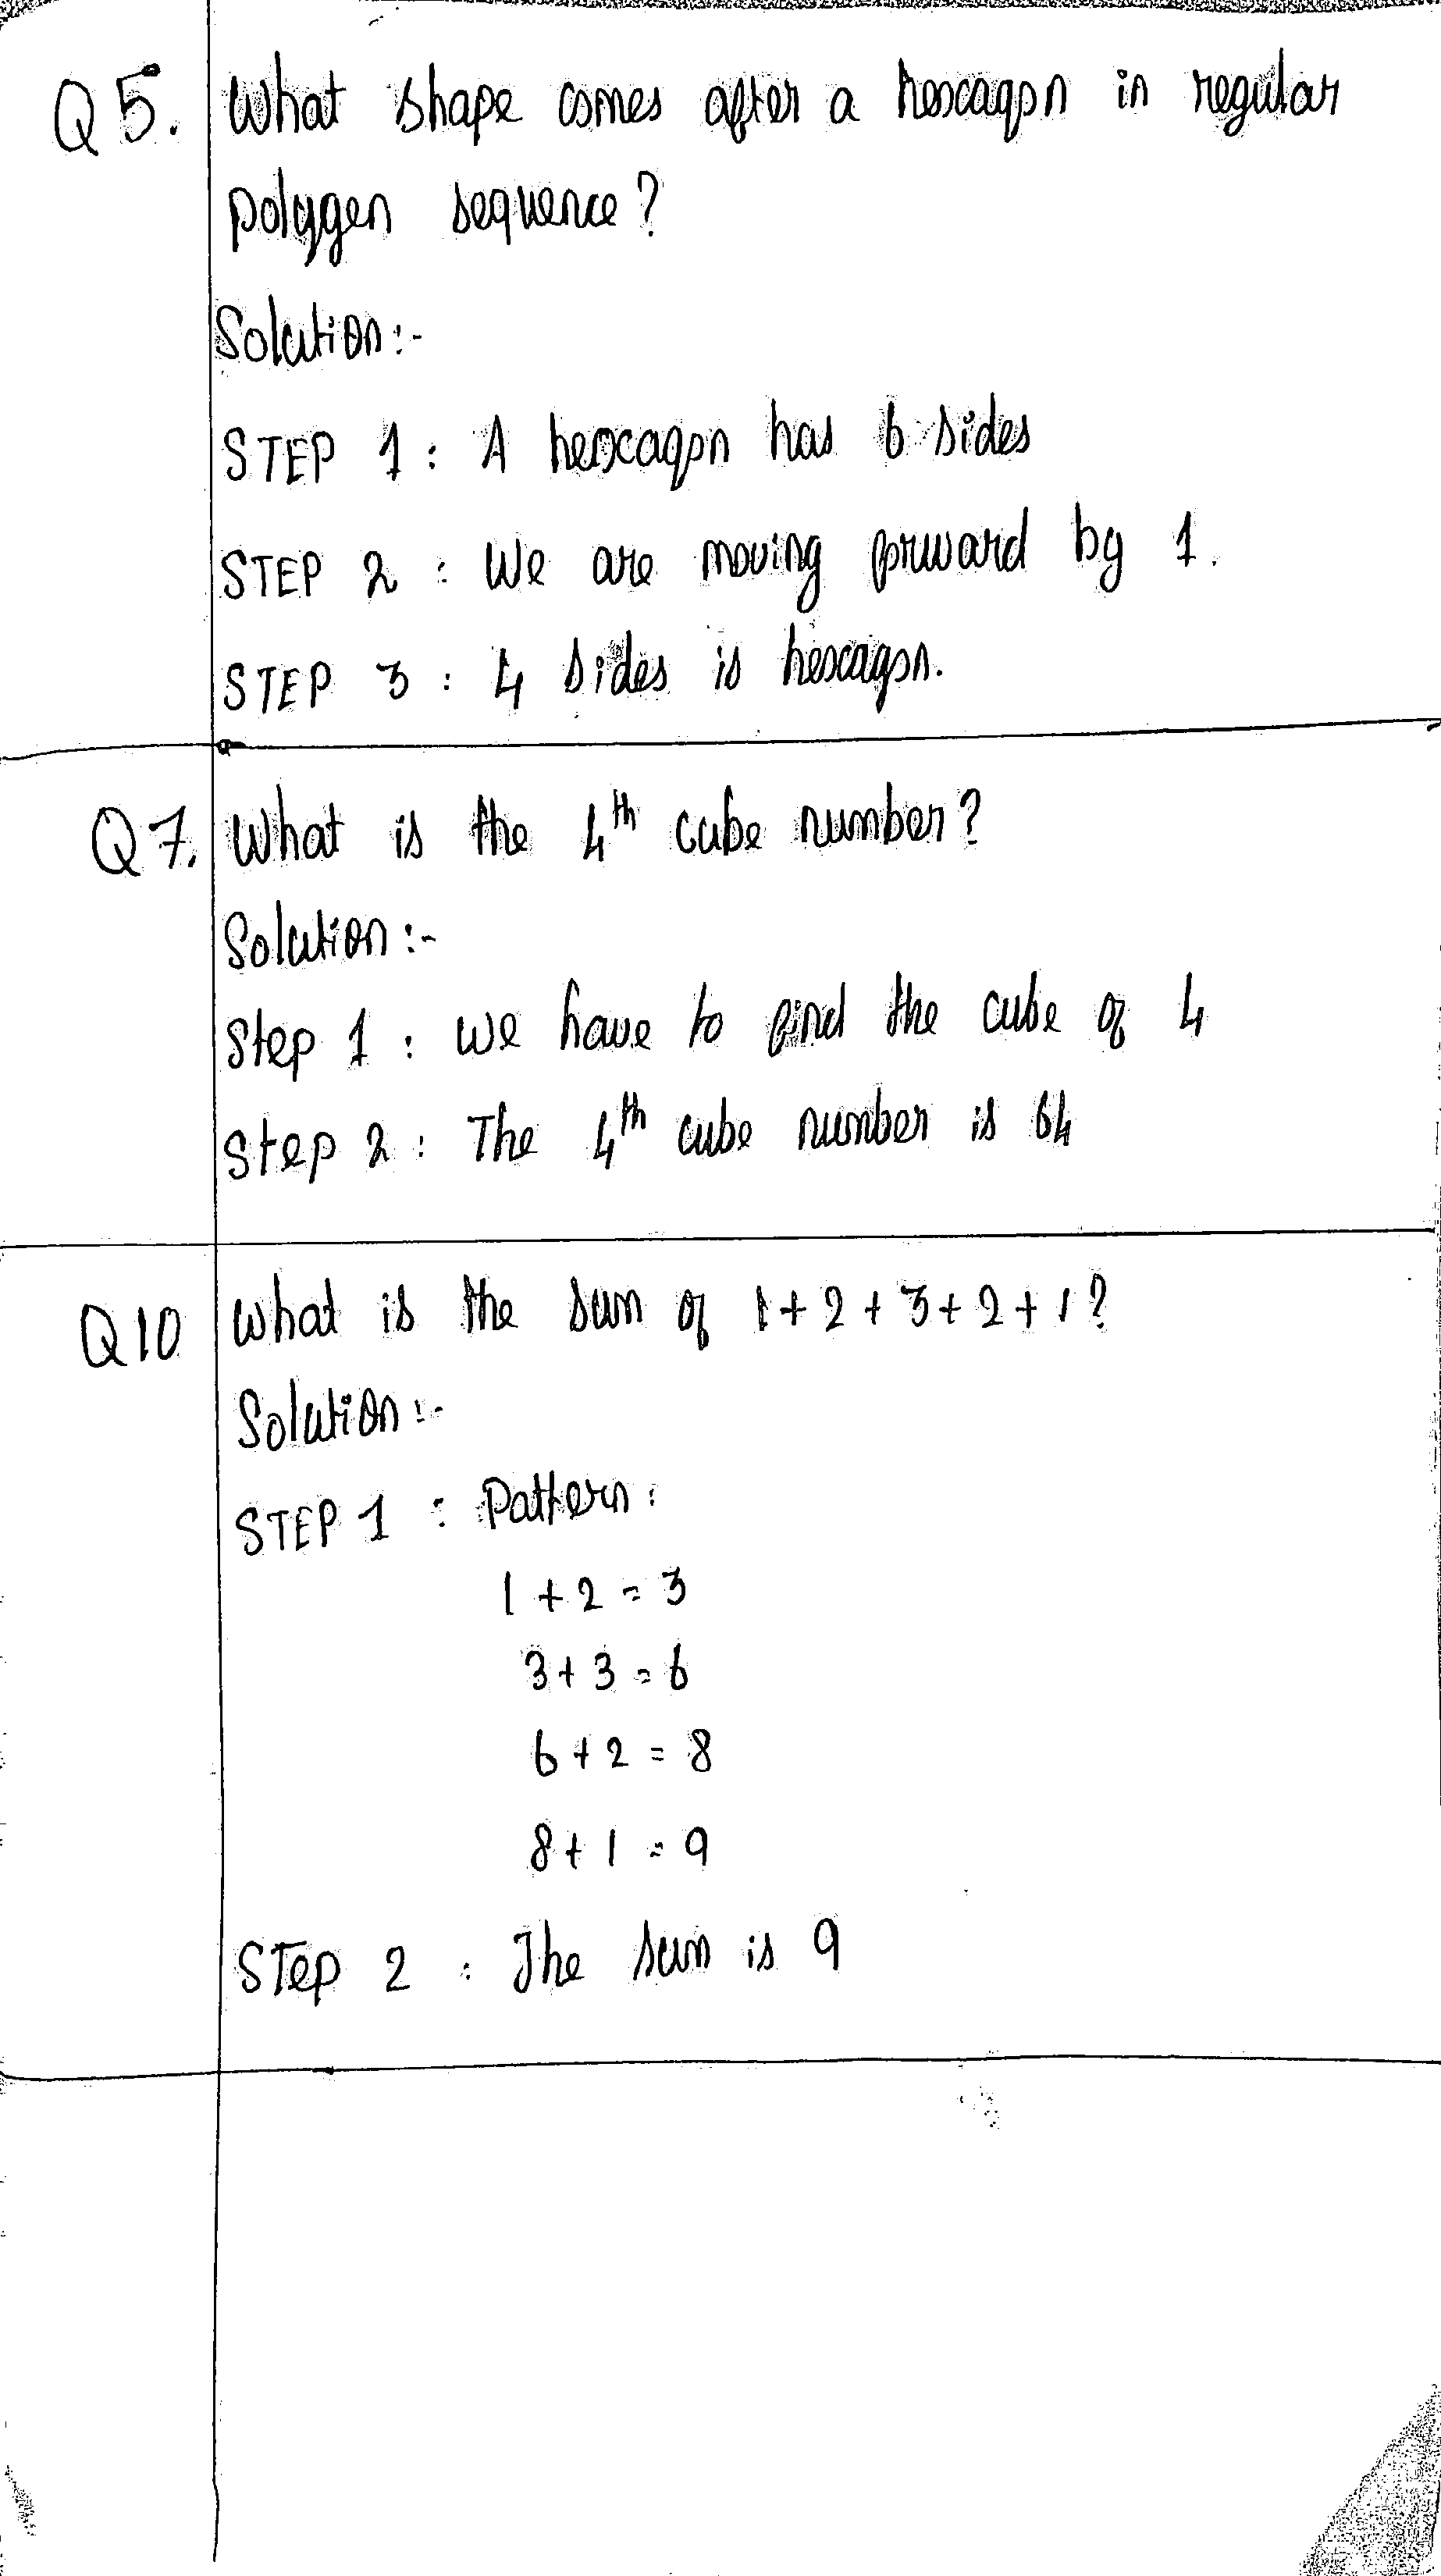 Q5. What shape comes after a hexagon in regular
polygen sequence?
Solution:-
STEP 1: A hexagon has 6 sides
STEP 2: We are moving forward by 1.
STEP 3: 4 sides is hexagon.
Q7. What is the 4th cube number?
Solution:-
Step 1: We have to find the cube of 4
Step 2: The 4th cube number is 64
Q10 What is the sum of 1+2+3+2+1?
Solution:-
STEP 1: Pattern:
1+2=3
3+3=6
6+2=8
8+1=9
STep 2: The sum is 9